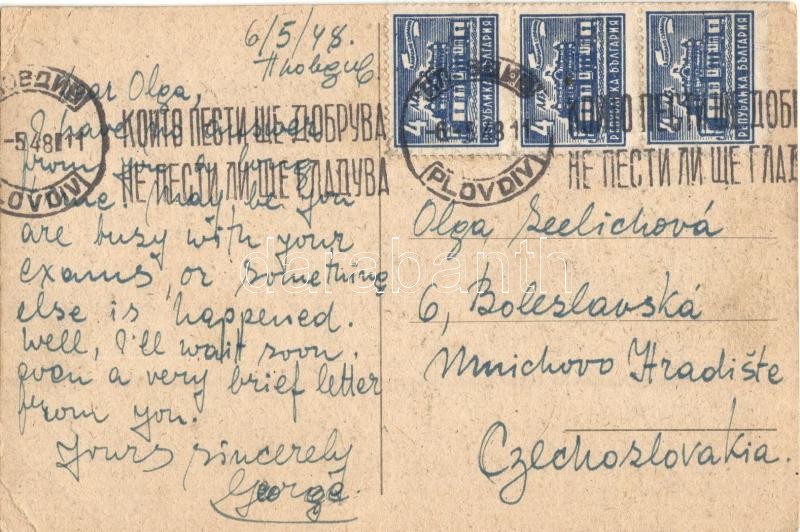 6/5/48.
Пловдив
Dear Olga,
I have no answer
from you a long
time. May be you
are busy with your
exams, or something
else is happened.
Well, I'll wait soon
even a very brief letter
from you.
Yours sincerely
George
ПЛОВДИВ
-5.48 11
PLOVDIV
КОЙТО ПЕСТИ ЩЕ ДОБРУВА
НЕ ПЕСТИ ЛИ ЩЕ ГЛАДУВА
4 ЛВ РЕПУБЛИКА БЪЛГАРИЯ
4 ЛВ РЕПУБЛИКА БЪЛГАРИЯ
4 ЛВ РЕПУБЛИКА БЪЛГАРИЯ
ПЛОВДИВ
48 11
(PLOVDIV)
КОЙТО ПЕСТИ ЩЕ ДОБ
НЕ ПЕСТИ ЛИ ЩЕ ГЛАД
Olga Zeelichová
6, Boleslavská
Mnichovo Hradište
Czechoslovakia.
darabanth